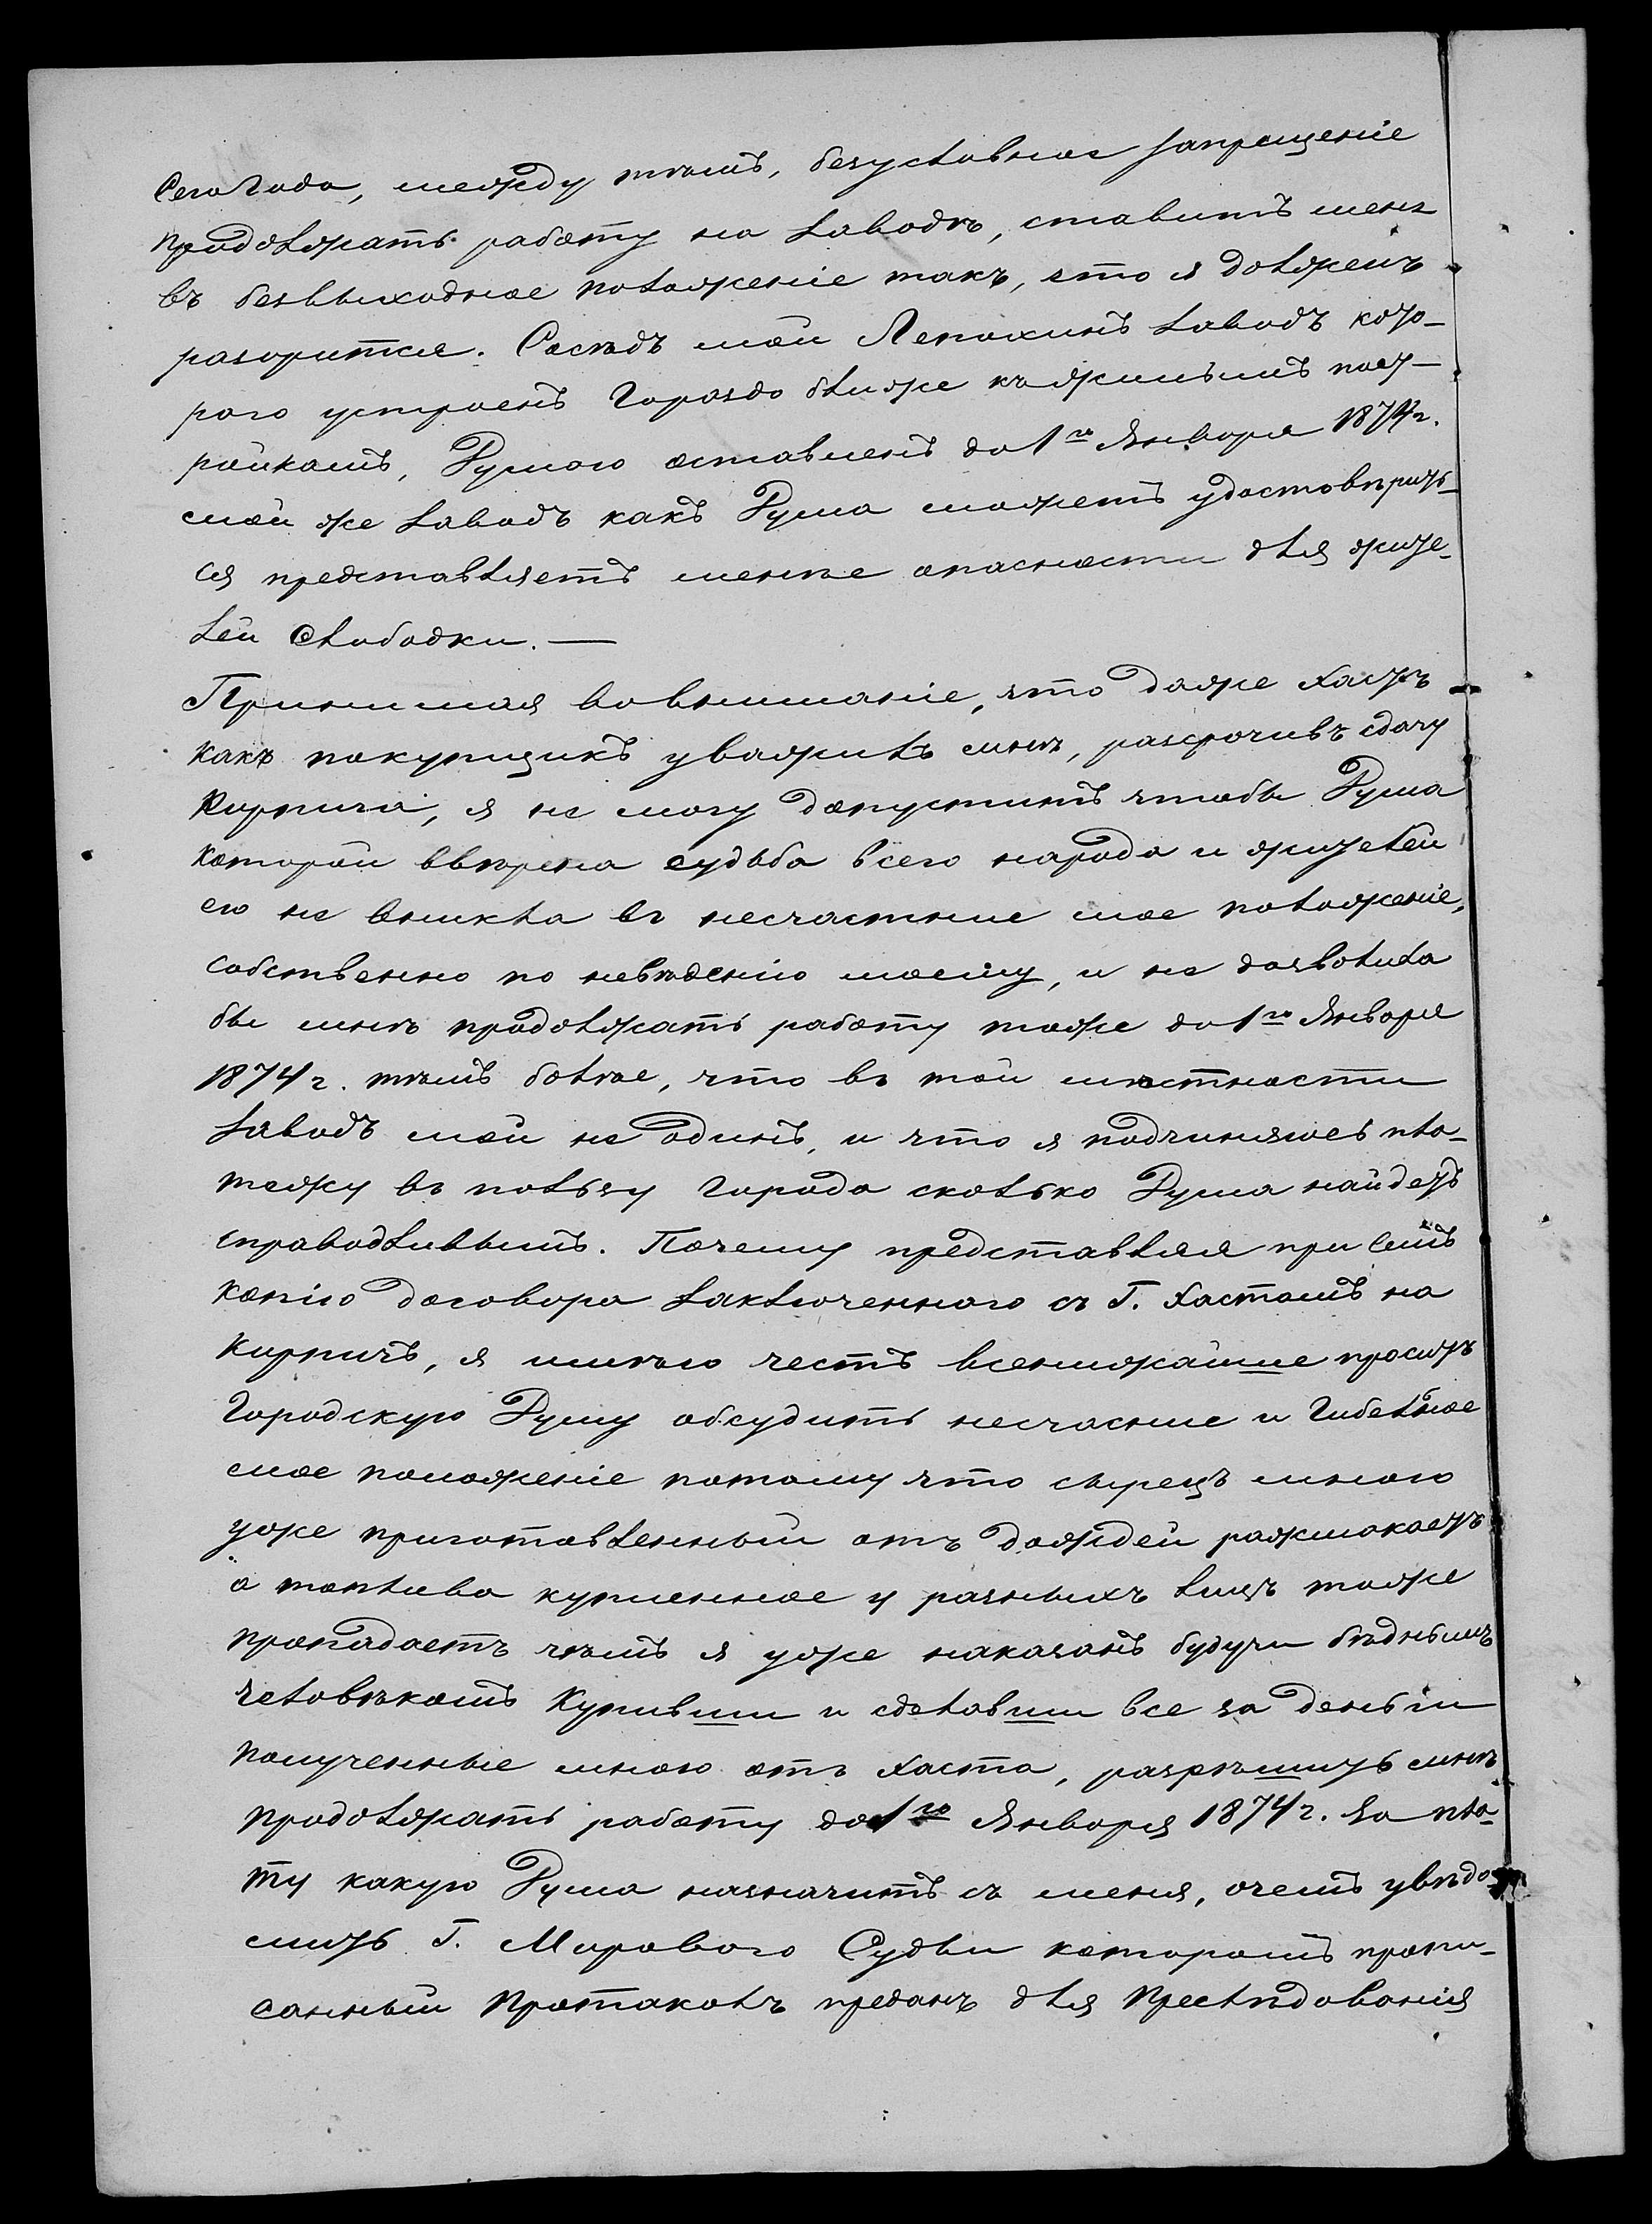 Сего года, между тѣмъ, безусловное запрещеніе
продолжать работу на заводѣ, ставитъ меня
въ безвыходное положеніе такъ, что я долженъ
разоритея. Сосѣдъ мой Лепохинъ заводъ кото-
рого устроенъ гораздо ближе къ жилымъ пост-
ройкамъ, Думою оставленъ до 1го Января 1874 г.
мой же заводъ какъ Дума можетъ удостовѣрить-
ся представляетъ менѣе опасности для жите-
лей Слободки. —
Принимая во вниманіе, что даже Хастъ
какъ покупщикъ уважилъ мнѣ, разсрочивъ сдачу
кирпича, я не могу допустить чтобы Дума
которой ввѣрена судьба всего народа и жителей
его не вникла въ несчастние мое положеніе,
собственно по невѣденію моему, и не дозволила
бы мнѣ продолжать работу тоже до 1го Января
1874 г. тѣмъ болѣе, что въ той мѣстности
заводъ мой не одинъ, и что я подчиняюсь пла-
тежу въ пользу города сколько Дума найдетъ
справодливымъ. Почему представляя при семъ
копію договора заключенного съ Г. Хастомъ на
кирпичъ, я имѣю честь всенижайше просить
Городскую Думу обсудить несчасние и гибельное
мое положеніе потому что сырецъ мною
уже приготовленный отъ дождей размокаетъ
а топливо купленное у разныхъ лицъ тоже
пропадаетъ чѣмъ я уже наказанъ будучи бѣднымъ
человѣкомъ купивши и сделавши все за деньги
полученные мною отъ Хаста, разрѣшить мнѣ
продолжать работу до 1го Января 1874 г. за пла-
ту какую Дума назначитъ съ меня, очемъ увѣдо-
мить Г. Мирового Судьи которомъ пропи-
санный протаколъ преданъ для преслѣдованія